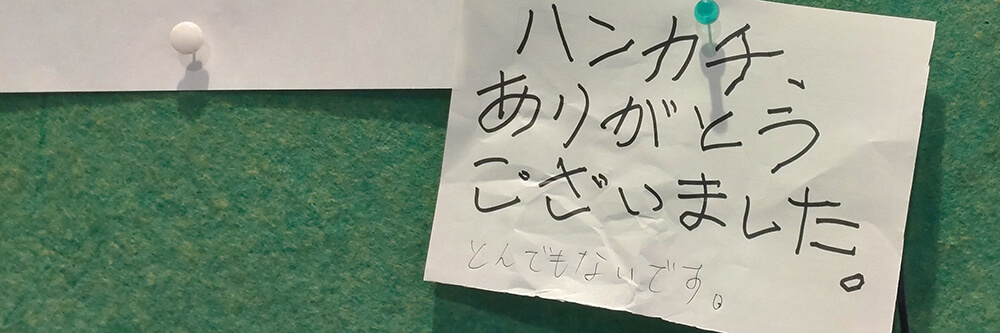 ハンカチ、
ありがとう
ございました。
とんでもないです。